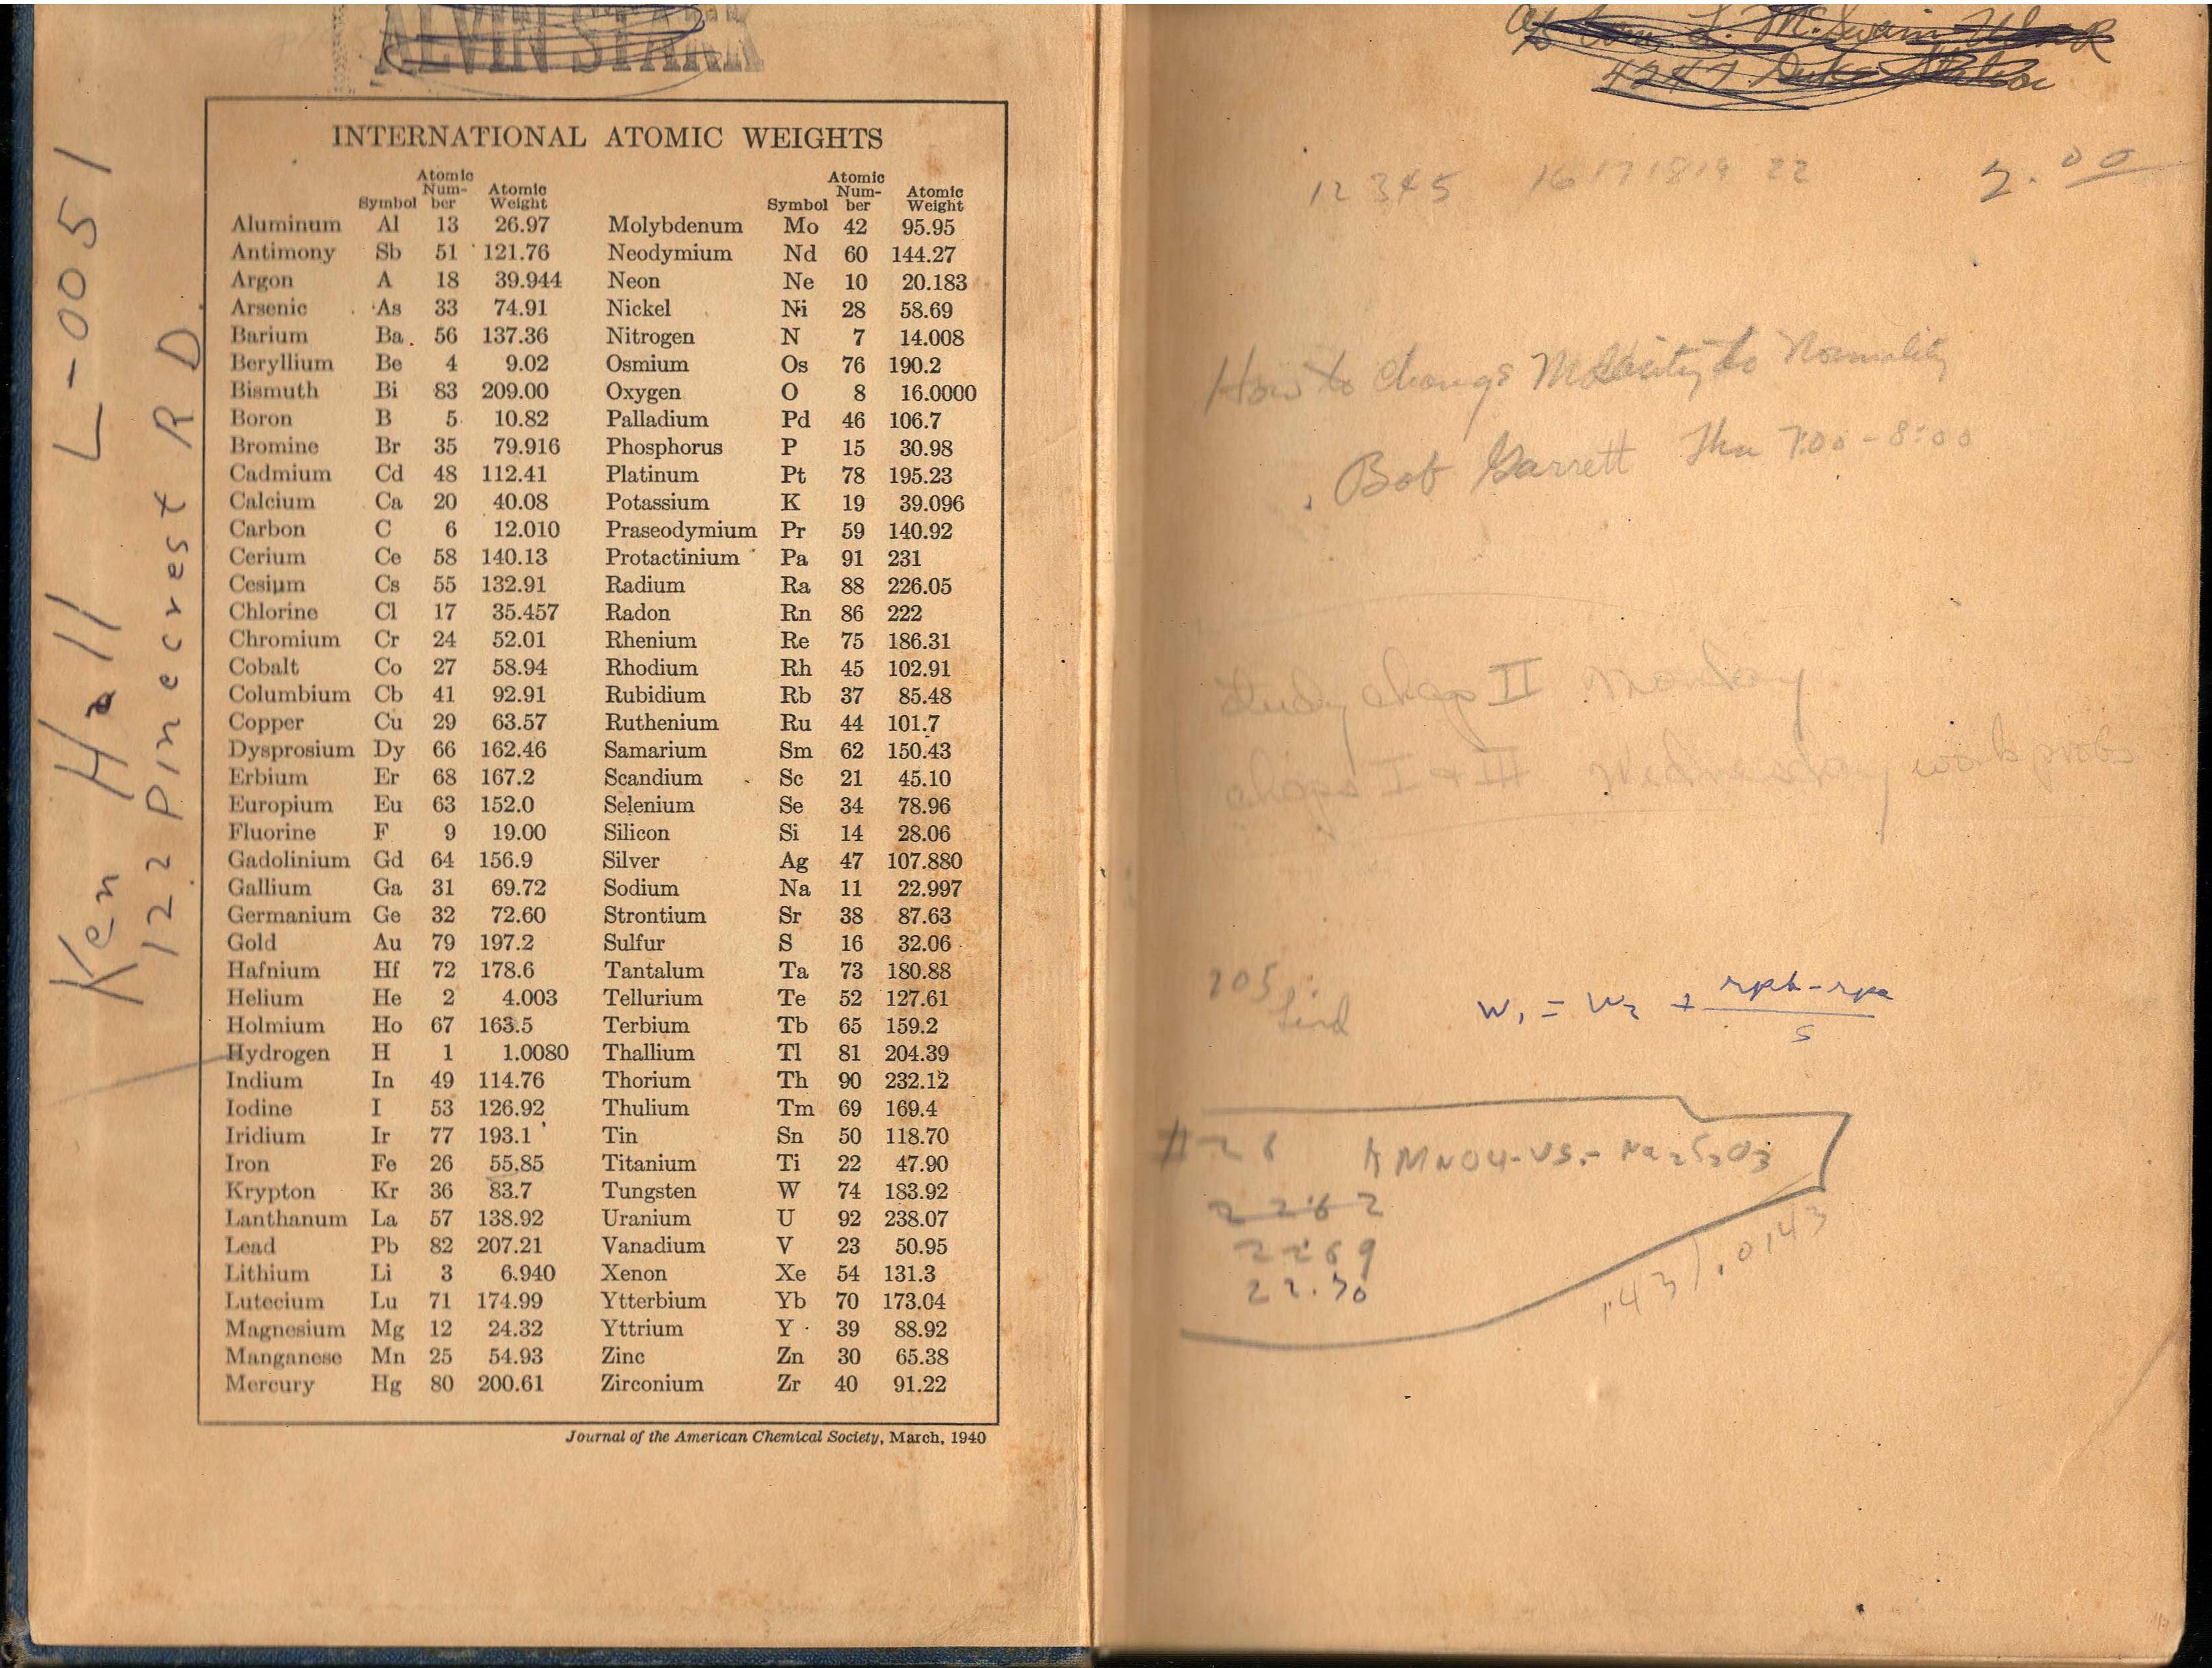 ALVIN STARK
Ken Hall L-0051
122 Pinecrest RD
INTERNATIONAL ATOMIC WEIGHTS
Symbol Atomic Num-ber Atomic Weight Symbol Atomic Num-ber Atomic Weight
Aluminum Al 13 26.97 Molybdenum Mo 42 95.95
Antimony Sb 51 121.76 Neodymium Nd 60 144.27
Argon A 18 39.944 Neon Ne 10 20.183
Arsenic As 33 74.91 Nickel Ni 28 58.69
Barium Ba 56 137.36 Nitrogen N 7 14.008
Beryllium Be 4 9.02 Osmium Os 76 190.2
Bismuth Bi 83 209.00 Oxygen O 8 16.0000
Boron B 5 10.82 Palladium Pd 46 106.7
Bromine Br 35 79.916 Phosphorus P 15 30.98
Cadmium Cd 48 112.41 Platinum Pt 78 195.23
Calcium Ca 20 40.08 Potassium K 19 39.096
Carbon C 6 12.010 Praseodymium Pr 59 140.92
Cerium Ce 58 140.13 Protactinium Pa 91 231
Cesium Cs 55 132.91 Radium Ra 88 226.05
Chlorine Cl 17 35.457 Radon Rn 86 222
Chromium Cr 24 52.01 Rhenium Re 75 186.31
Cobalt Co 27 58.94 Rhodium Rh 45 102.91
Columbium Cb 41 92.91 Rubidium Rb 37 85.48
Copper Cu 29 63.57 Ruthenium Ru 44 101.7
Dysprosium Dy 66 162.46 Samarium Sm 62 150.43
Erbium Er 68 167.2 Scandium Sc 21 45.10
Europium Eu 63 152.0 Selenium Se 34 78.96
Fluorine F 9 19.00 Silicon Si 14 28.06
Gadolinium Gd 64 156.9 Silver Ag 47 107.880
Gallium Ga 31 69.72 Sodium Na 11 22.997
Germanium Ge 32 72.60 Strontium Sr 38 87.63
Gold Au 79 197.2 Sulfur S 16 32.06
Hafnium Hf 72 178.6 Tantalum Ta 73 180.88
Helium He 2 4.003 Tellurium Te 52 127.61
Holmium Ho 67 163.5 Terbium Tb 65 159.2
Hydrogen H 1 1.0080 Thallium Tl 81 204.39
Indium In 49 114.76 Thorium Th 90 232.12
Iodine I 53 126.92 Thulium Tm 69 169.4
Iridium Ir 77 193.1 Tin Sn 50 118.70
Iron Fe 26 55.85 Titanium Ti 22 47.90
Krypton Kr 36 83.7 Tungsten W 74 183.92
Lanthanum La 57 138.92 Uranium U 92 238.07
Lead Pb 82 207.21 Vanadium V 23 50.95
Lithium Li 3 6.940 Xenon Xe 54 131.3
Lutecium Lu 71 174.99 Ytterbium Yb 70 173.04
Magnesium Mg 12 24.32 Yttrium Y 39 88.92
Manganese Mn 25 54.93 Zinc Zn 30 65.38
Mercury Hg 80 200.61 Zirconium Zr 40 91.22
Journal of the American Chemical Society, March, 1940
L. McSwain
4247 Duke Station
12345 16171819 22 2.00
How to change Molarity to Normality
Bob Garrett Thu 7:00-8:00
Study chap II Monday
chaps I + III Wednesday work probs
205
find
W1 = W2 + rpb-rpa
s
#26 KMnO4-vs.-Na2S2O3
2262
2269
22.70
.43).0143